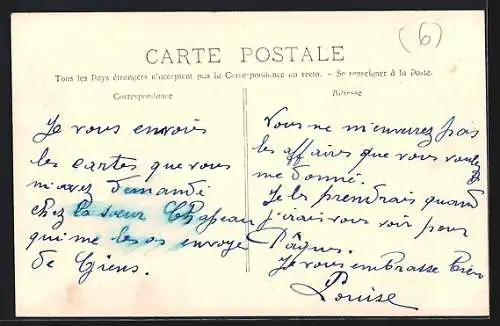 (6)
CARTE POSTALE
Tous les Pays étrangers n'acceptent pas la Correspondance au recto. - Se renseigner à la Poste.
Correspondance
Je vous envoies
les cartes que vous
m'avez demandé
chez la sœur Chapeau
qui me les as envoyé
de Giens.
Adresse
Vous ne m'enverez pas
les affaires que vous voulez
me donné.
Je les prendrais quand
j'irais vous voir pour
Pâques.
Je vous embrasse bien
Louise